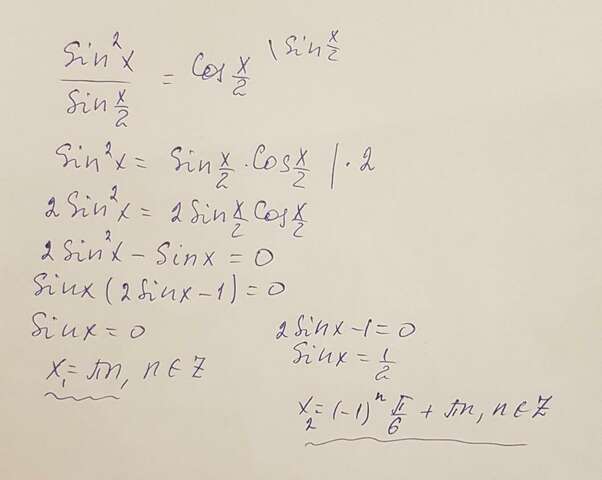 Sin²x / Sin x/2 = Cos x/2 \ Sin x/2
Sin²x = Sin x/2 · Cos x/2 | · 2
2 Sin²x = 2 Sin x/2 Cos x/2
2 Sin²x – Sin x = 0
Sin x (2 Sin x – 1) = 0
Sin x = 0
x₁ = πn, n ∈ Z
2 Sin x – 1 = 0
Sin x = 1/2
x₂ = (-1)ⁿ π/6 + πn, n ∈ Z